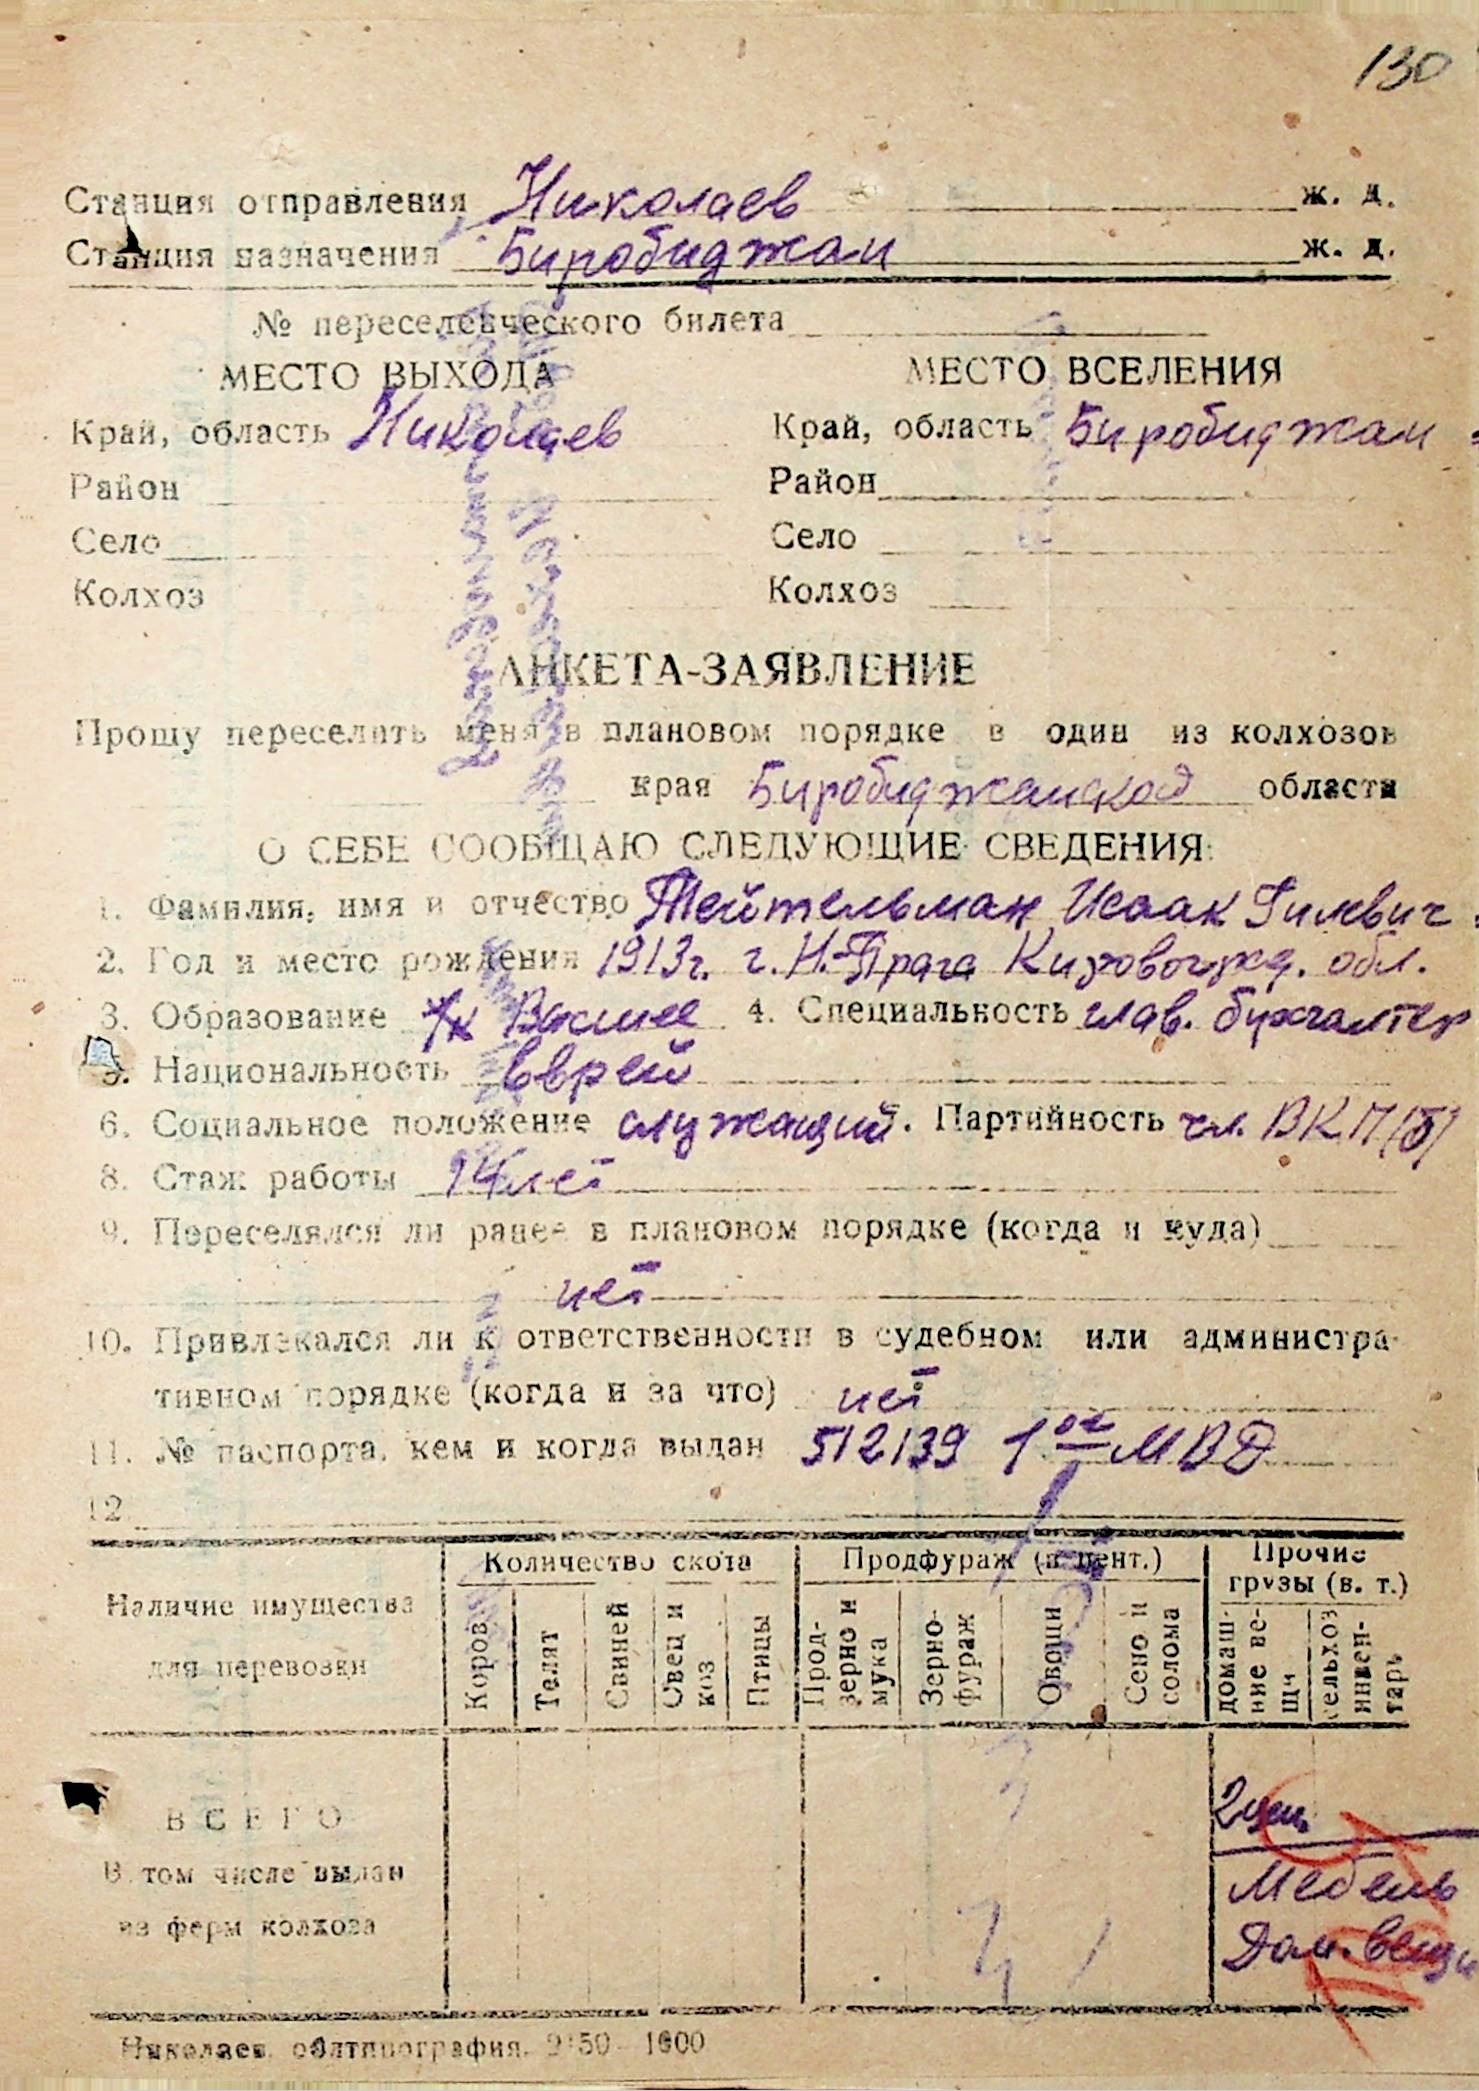 130
Станция отправления Николаев ж. д.
Станция назначения Биробиджан ж. д.
№ переселенческого билета
МЕСТО ВЫХОДА МЕСТО ВСЕЛЕНИЯ
Край, область Николаев Край, область Биробиджан
Район Район
Село Село
Колхоз Колхоз
АНКЕТА-ЗАЯВЛЕНИЕ
Прошу переселить меня в плановом порядке в один из колхозов
края Биробиджанской области
О СЕБЕ СООБЩАЮ СЛЕДУЮЩИЕ СВЕДЕНИЯ:
1. Фамилия, имя и отчество Тейтельман Исаак
2. Год и место рождения 1913г. г. Н.-Прага Кировоград. обл.
3. Образование Высшее 4. Специальность глав. бухгалтер
5. Национальность еврей
6. Социальное положение служащий. Партийность чл. ВКП(б)
8. Стаж работы 14 лет
9. Переселялся ли ранее в плановом порядке (когда и куда)
нет
10. Привлекался ли к ответственности в судебном или администра-
тивном порядке (когда и за что) нет
11. № паспорта, кем и когда выдан 512139 1 ое МВД
12.
Наличие имущества для перевозки
Количество скота Продфураж (в цент.) Прочие грузы (в. т.)
Коров Телят Свиней Овец и коз Птицы Прод-зерно и мука Зерно-фураж Овощи Сено и солома домаш-ние ве-щи сельхоз инвен-тарь
ВСЕГО 2
В том числе выдан Мебель
из ферм колхоза Дом. вещи
Николаев, облтипография. 1600